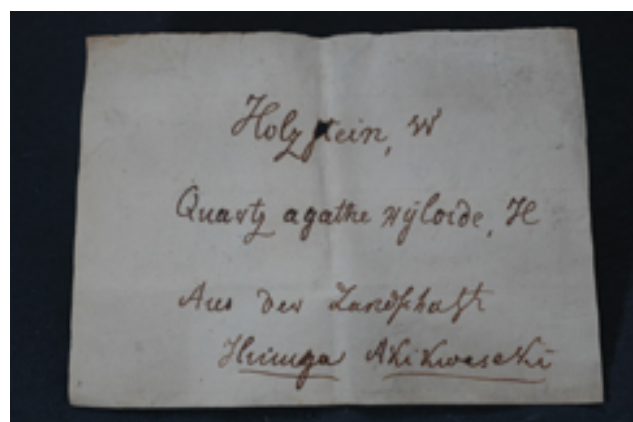 Holzstein, W
Quartz agathe xyloide, H
Aus der Landschaft
Akikwaseki